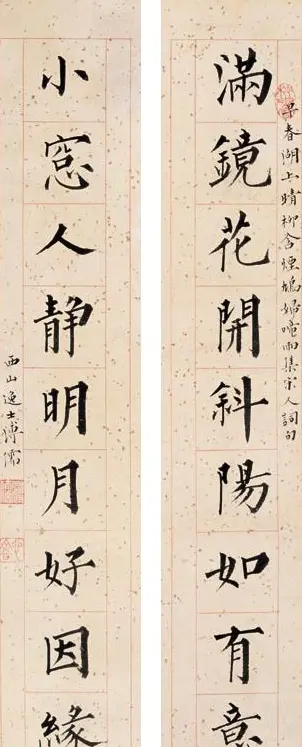 早春湖上晴柳含煙鳩婦啼雨集宋人詞句
滿鏡花開斜陽如有意
小窓人静明月好因緣
西山逸士溥儒